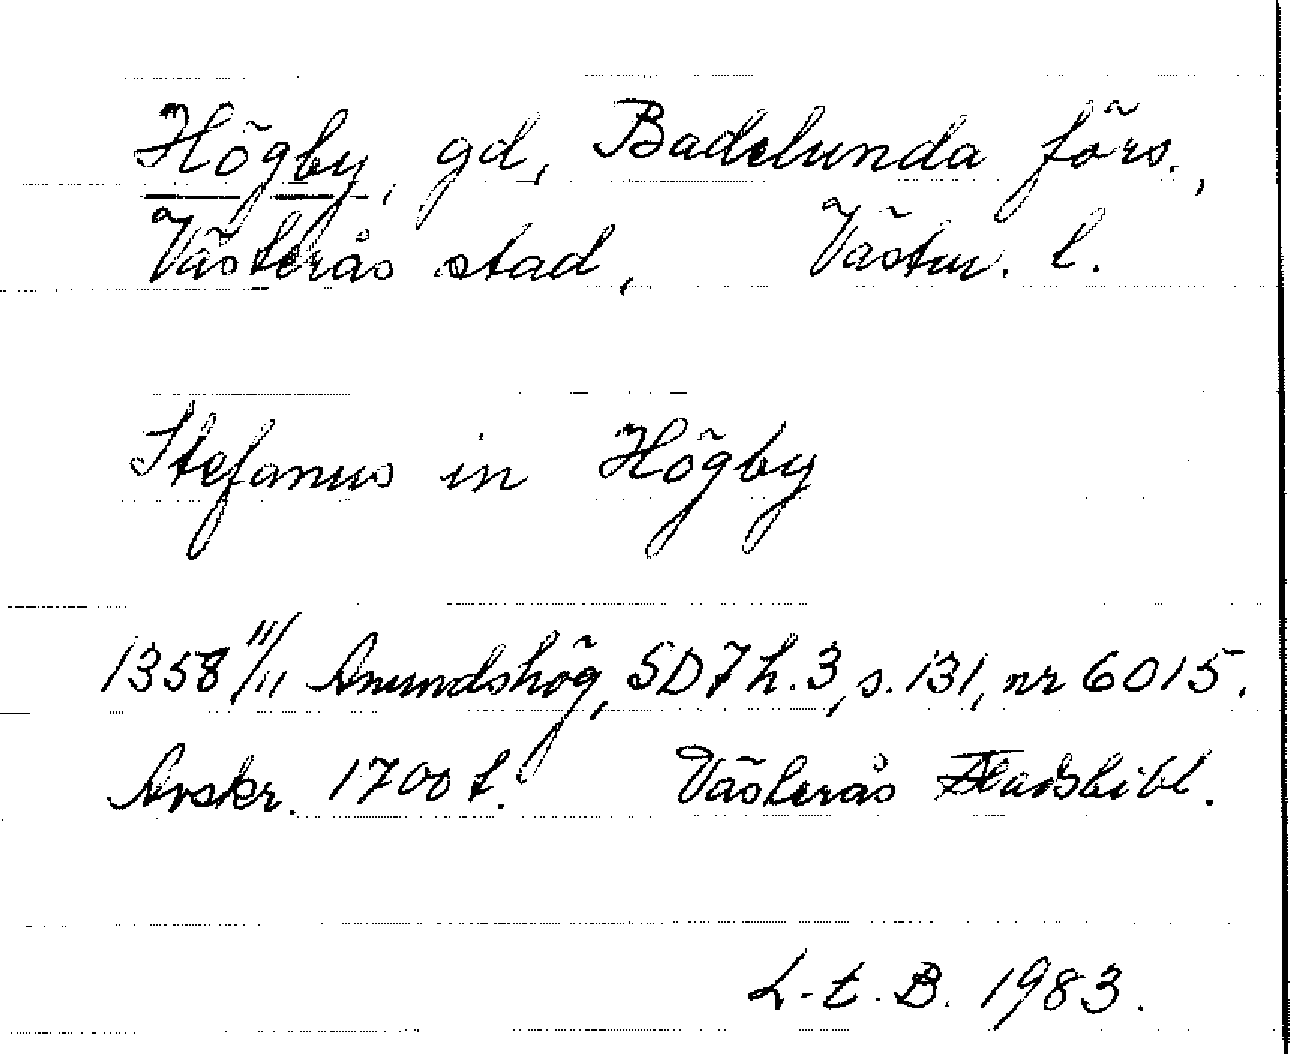 Högby, gd, Badelunda förs.,
Västerås stad, Västm. l.
Stefanus in Högby
1358 11/11 Anundshög, SD 7 h. 3, s. 131, nr 6015.
Avskr. 1700 t. Västerås Stadsbibl.
L-t. B. 1983.